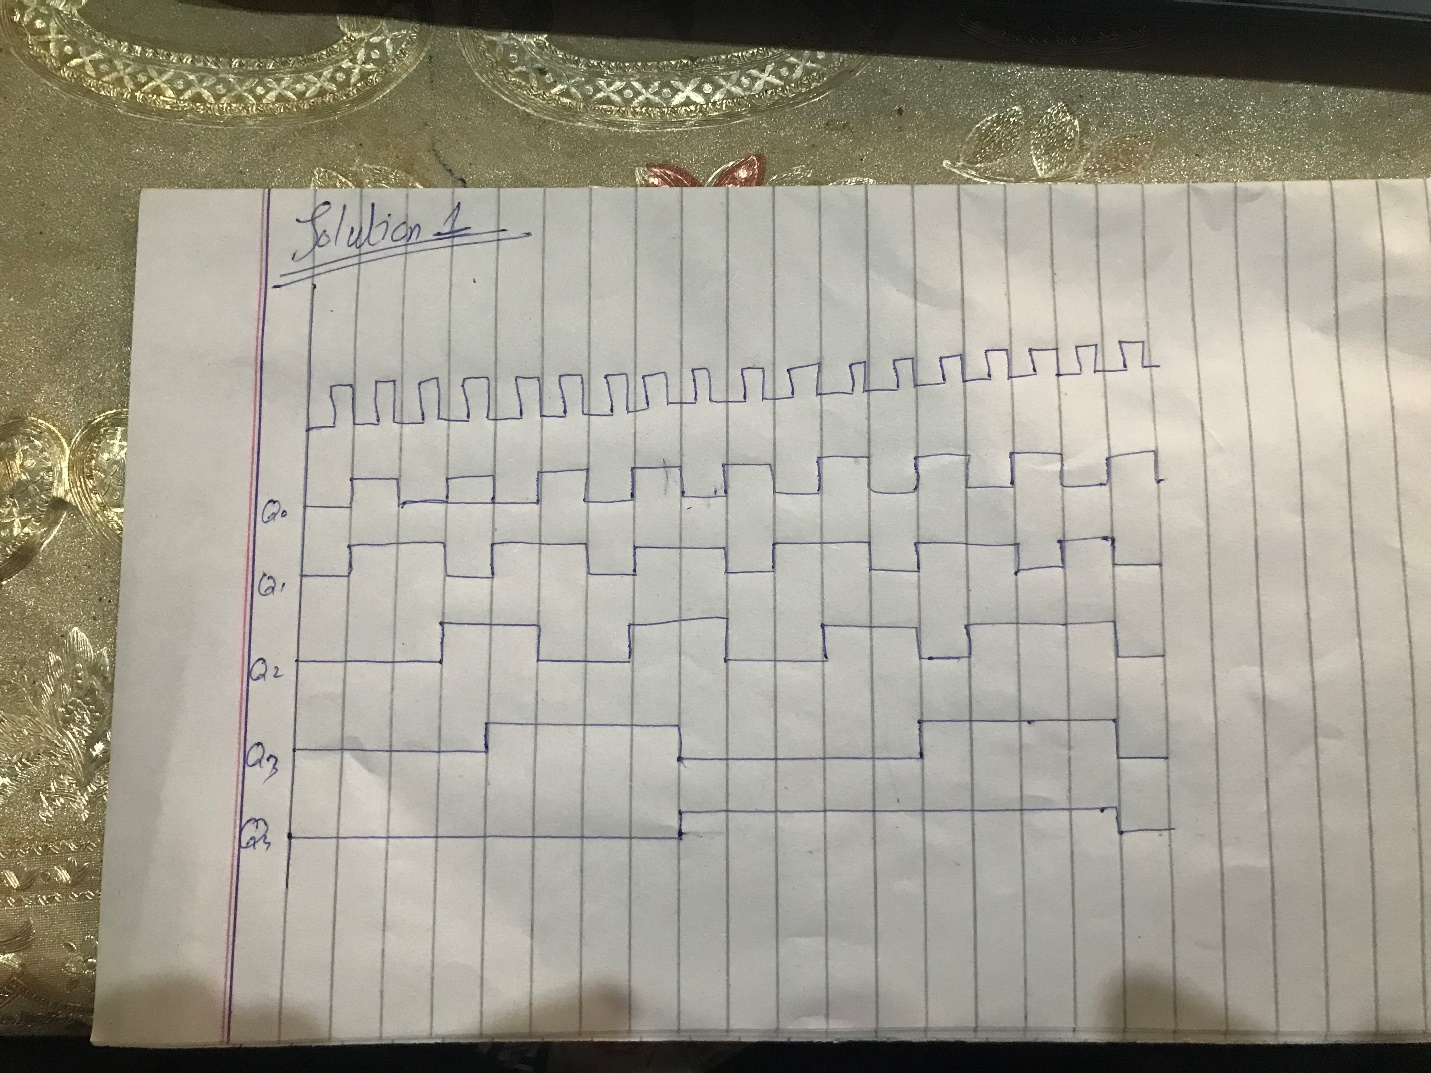 Solution 1
Q0
Q1
Q2
Q3